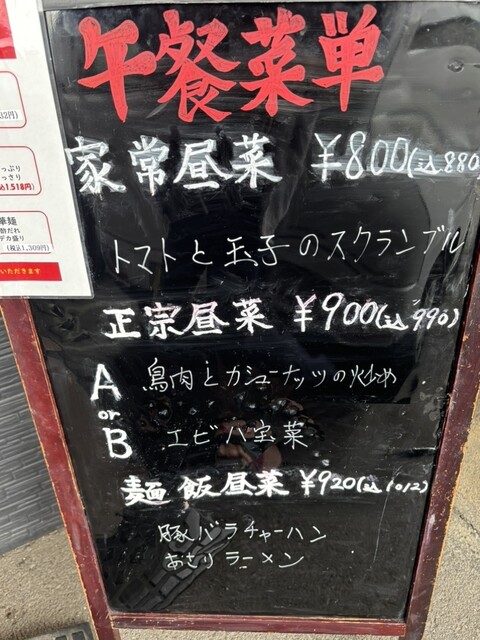 午餐菜単
家常昼菜 ¥800(込880
トマトと玉子のスクランブル
正宗昼菜 ¥900(込990)
A 鳥肉とカシューナッツの炒め
or
B エビ八宝菜
麺飯昼菜 ¥920(込1012)
豚バラチャーハン
あさりラーメン
32円)
っぷり
さっさり
込1,518円)
華麺
酢だれ
デカ盛り
(税込1,309円)
いただきます